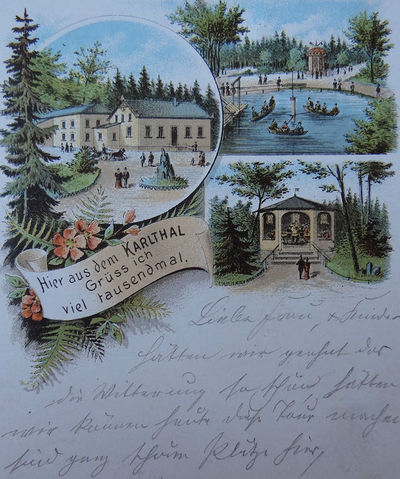 Hier aus dem KARLTHAL
Grüss ich
viel tausendmal.
Liebe Frau, & Kinder
hätten wir geahnt das
die Witterung so schön hätten
wir können heute diese Tour machen
sind ganz schöne Plätze hier,